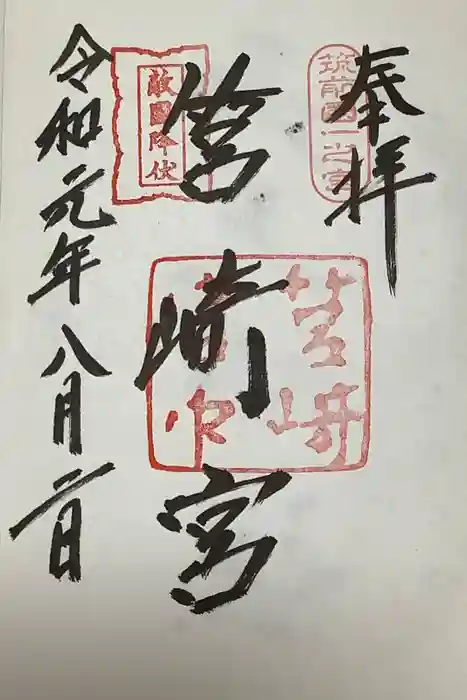 奉拝
筑前國一之宮
筥崎宮
敵國降伏
令和元年八月二日